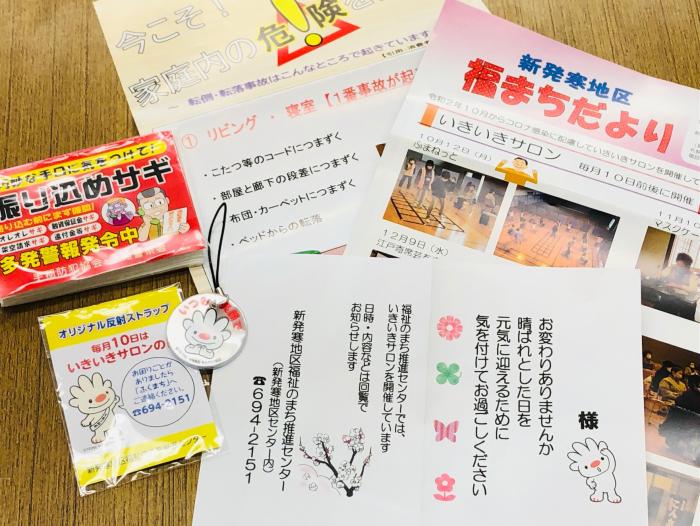 今こそ！
家庭内の危険を
～ 転倒・転落事故はこんなところで起きています
① リビング ・ 寝室 【1番事故が起
・こたつ等のコードにつまずく
・部屋と廊下の段差につまずく
・布団・カーペットにつまずく
・ベッドからの転落
新発寒地区
福まちだより
令和2年10月からコロナ感染に配慮していきいきサロンを開催して
いきいきサロン
毎月10日前後に開催
10月12日(月)
ふまねっと
12月9日(水)
江戸寄席芸を
11月10
マスクケー
な手口に気をつけて!
振り込めサギ
振り込む前にまず確認!
オレオレサギ
融資保証金サギ
架空請求サギ
還付金等サギ
多発警報発令中
手稲防犯協会
オリジナル反射ストラップ
毎月10日は
いきいきサロンの
お困りごとが
ありましたら
「ふくまち」へ
ご連絡ください。
☎694-2151
様
お変わりありませんか
晴ればれとした日を
元気に迎えるために
気を付けてお過ごしください
福祉のまち推進センターでは、
いきいきサロンを開催しています
日時・内容などは回覧で
お知らせします
新発寒地区福祉のまち推進センター
(新発寒地区センター内)
☎694-2151